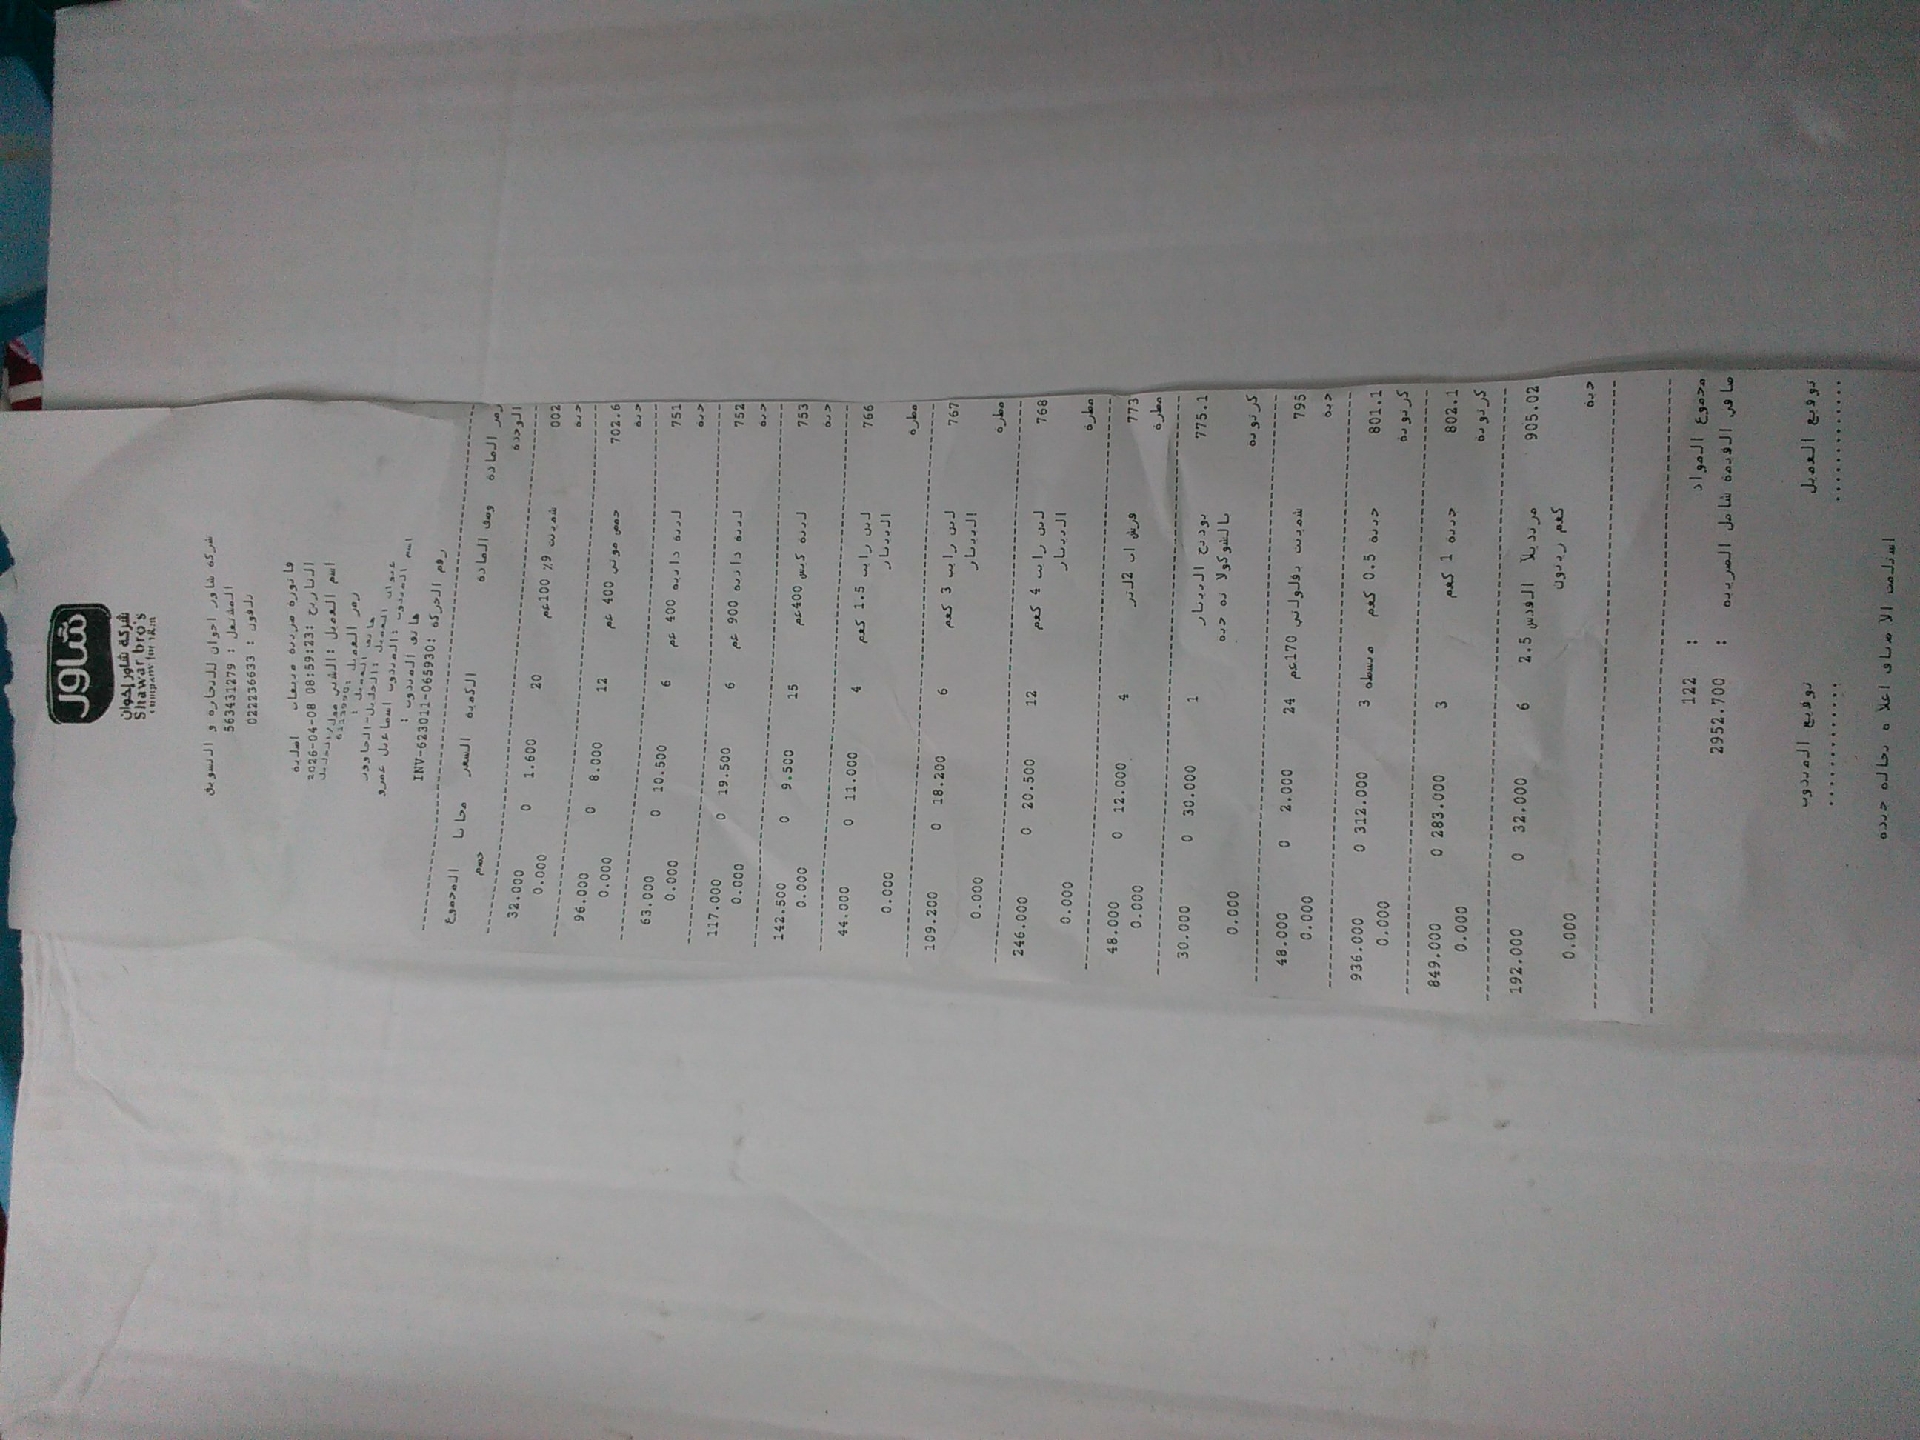 شاور
شركة شاور إخوان
Shawar bro's
company for train
شركة شاور اخوان للتجارة و التسويق
المشتغل : 563431279
تلفون : 022236633
فاتورة ضريبية مبيعات اصلية
التاريخ :2026-04-08 08:59:23
اسم العميل :
رمز العميل :
هاتف العميل :
عنوان العميل :الخليل-الحاووز
اسم المندوب :المندوب اسماعيل عمرو
هاتف المندوب :
رقم الحركة :INV-623011-065930
رمز المادة وصف المادة الكمية السعر مجانا المجموع
الوحدة خصم
002 شمينت 9% 100غم 20 1.600 0 32.000
حبة 0.000
702.6 حمص موتي 400 غم 12 8.000 0 96.000
حبة 0.000
751 لبنة دانية 400 غم 6 10.500 0 63.000
حبة 0.000
752 لبنة دانية 900 غم 6 19.500 0 117.000
حبة 0.000
753 لبنة كيس 400غم 15 9.500 0 142.500
حبة 0.000
766 لبن رايب 1.5 كغم 4 11.000 0 44.000
الريناز
مطرة 0.000
767 لبن رايب 3 كغم 6 18.200 0 109.200
الريناز
مطرة 0.000
768 لبن رايب 4 كغم 12 20.500 0 246.000
الريناز
مطرة 0.000
773 فريش اب 2لتر 4 12.000 0 48.000
مطرة 0.000
775.1 بودنج الريناز 1 30.000 0 30.000
بالشوكولاته حبة
كرتونة 0.000
795 شمينت نابولي 170غم 24 2.000 0 48.000
حبة 0.000
801.1 جبنة 0.5 كغم مبسطة 3 312.000 0 936.000
كرتونة 0.000
802.1 جبنة 1 كغم 3 283.000 0 849.000
كرتونة 0.000
905.02 مرتديلا القدس 2.5 6 32.000 0 192.000
كغم زيتون
حبة 0.000
مجموع المواد : 122
صافي القيمة شامل الضريبة : 2952.700
توقيع العميل توقيع المندوب
............ ............
استلمت الاصناف اعلاه بحالة جيدة